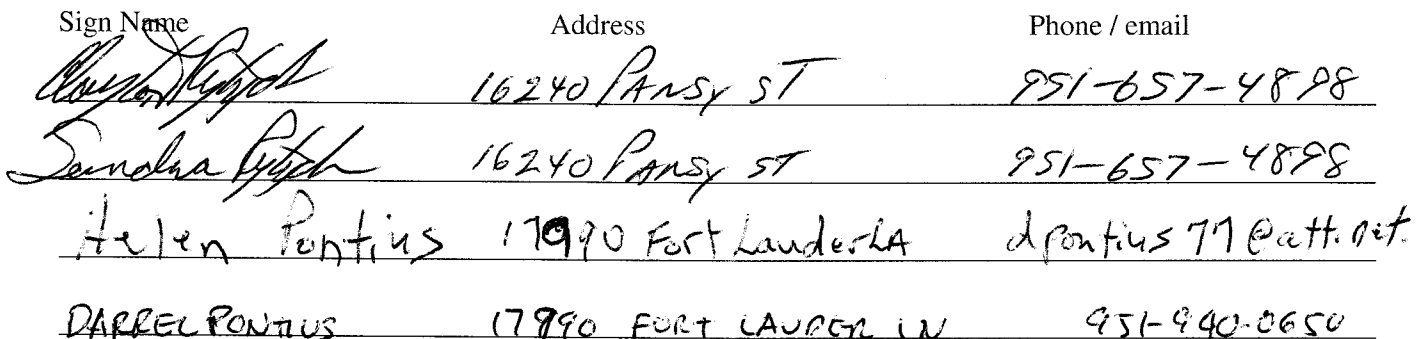 Sign Name Address Phone / email
16240 PANSY ST 951-657-4898
Sandra 16240 PANSY ST 951-657-4898
Helen Pontius 17990 Fort Lauder LA dpontius77@att.net.
DARREL PONTIUS 17990 FORT LAUDER LN 951-940-0650